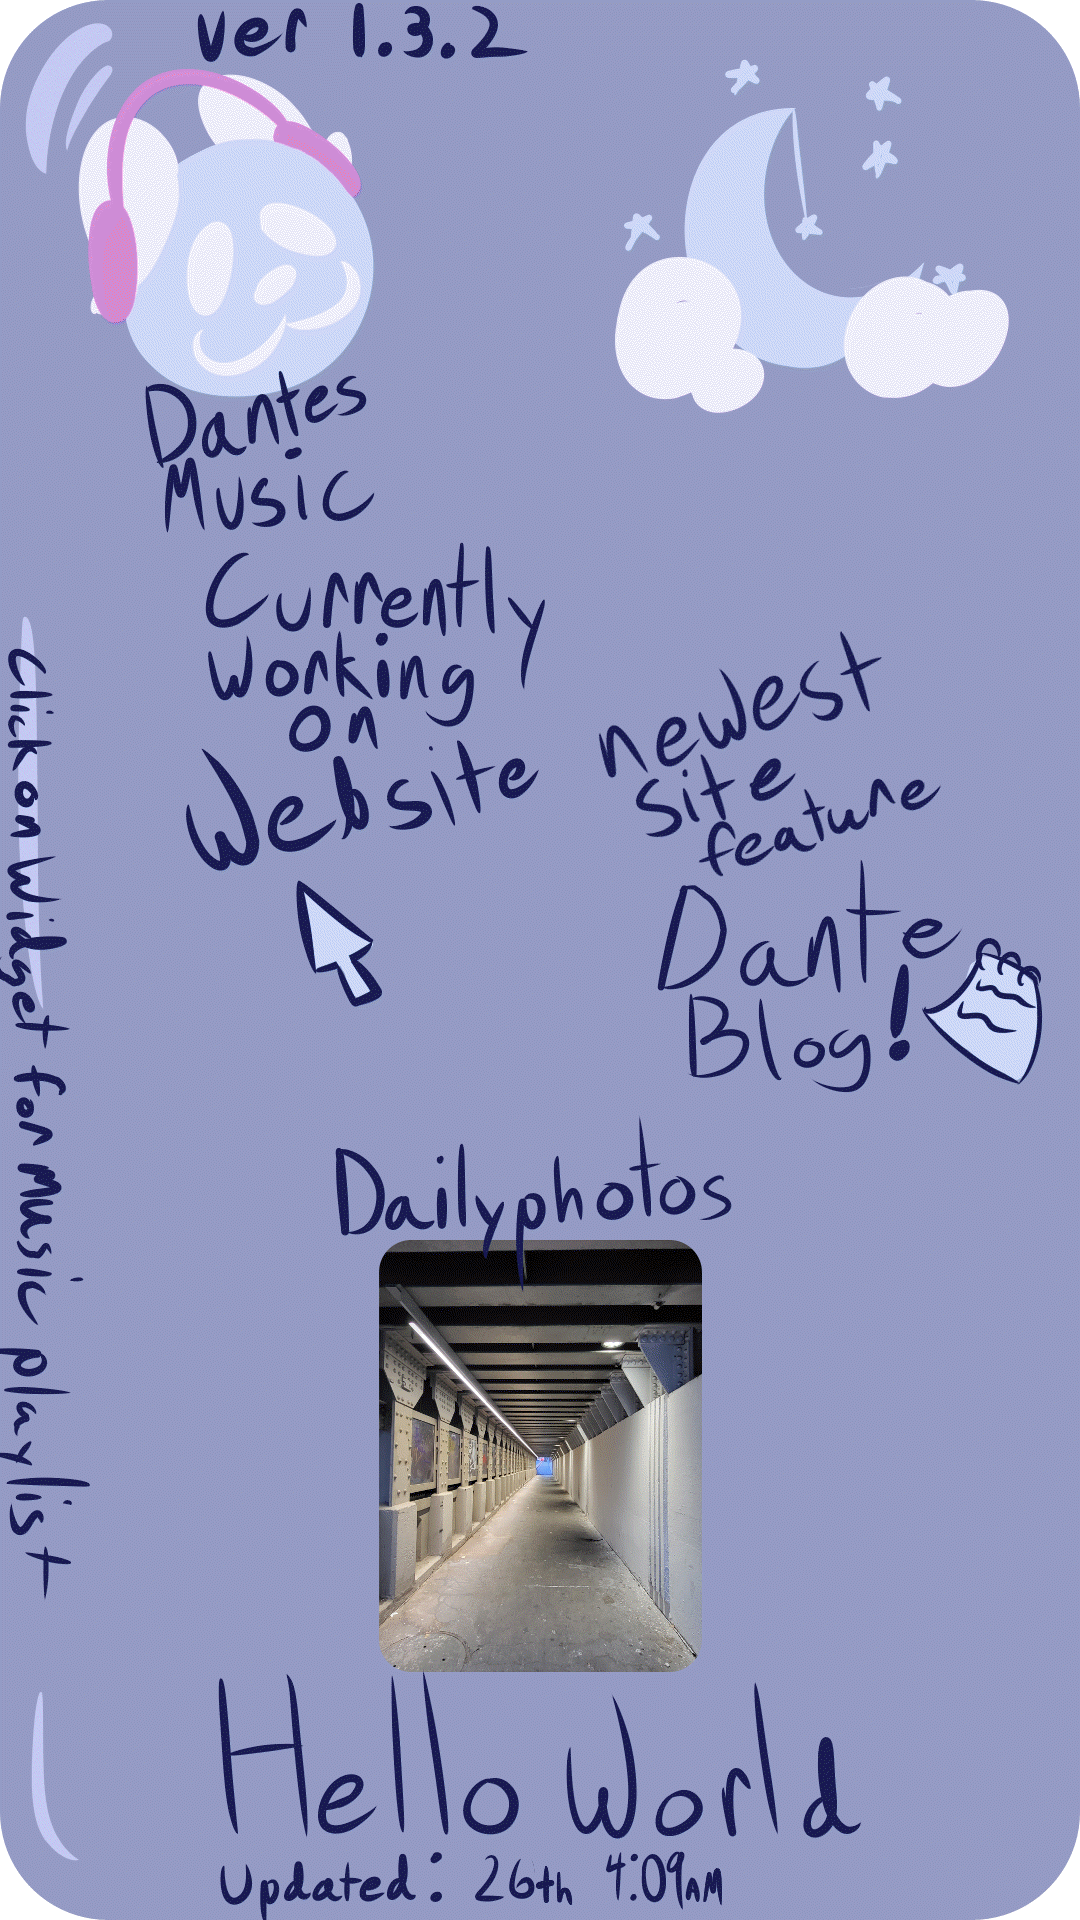 ver 1.3.2
Dantes
Music
Currently
working
on
Website
newest
site
feature
Dante
Blog!
Click on Widget for Music playlist
Dailyphotos
Hello World
Updated: 26th 4:09AM